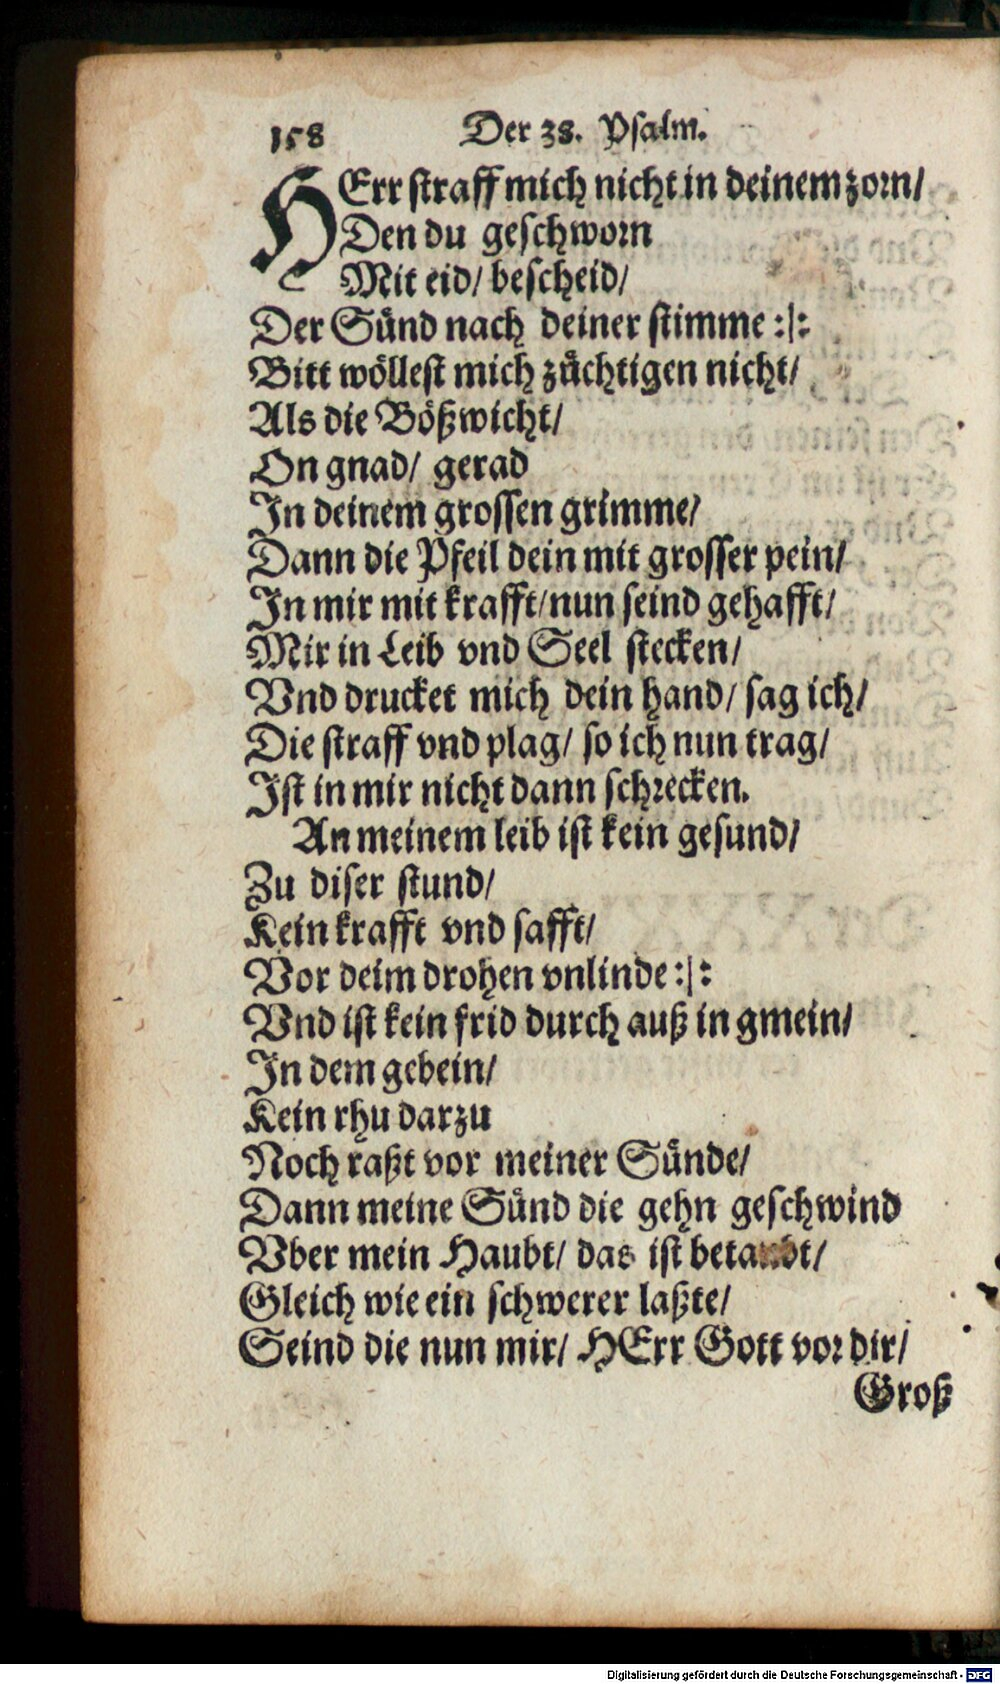 158 Der 38. Psalm.
HErr straff mich nicht in deinem zorn/
Den du geschworn
Mit eid/ bescheid/
Der Sünd nach deiner stimme :|:
Bitt wöllest mich züchtigen nicht/
Als die Bößwicht/
On gnad/ gerad
In deinem grossen grimme/
Dann die Pfeil dein mit grosser pein/
In mir mit krafft/nun seind gehafft/
Mir in Leib vnd Seel stecken/
Vnd drucket mich dein hand/ sag ich/
Die straff vnd plag/ so ich nun trag/
Ist in mir nicht dann schrecken.
An meinem leib ist kein gesund/
Zu diser stund/
Kein krafft vnd safft/
Vor deim drohen vnlinde :|:
Vnd ist kein frid durch auß in gmein/
In dem gebein/
Kein rhu darzu
Noch raßt vor meiner Sünde/
Dann meine Sünd die gehn geschwind
Vber mein Haubt/ das ist betaubt/
Gleich wie ein schwerer laßte/
Seind die nun mir/ HErr Gott vor dir/
Groß
Digitalisierung gefördert durch die Deutsche Forschungsgemeinschaft - DFG